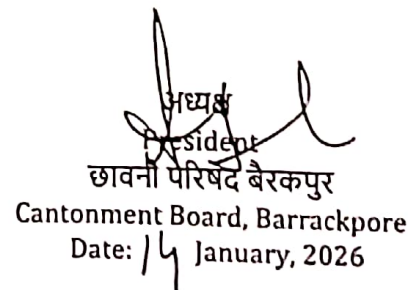 अध्यक्ष
President
छावनी परिषद बैरकपुर
Cantonment Board, Barrackpore
Date: 14 January, 2026